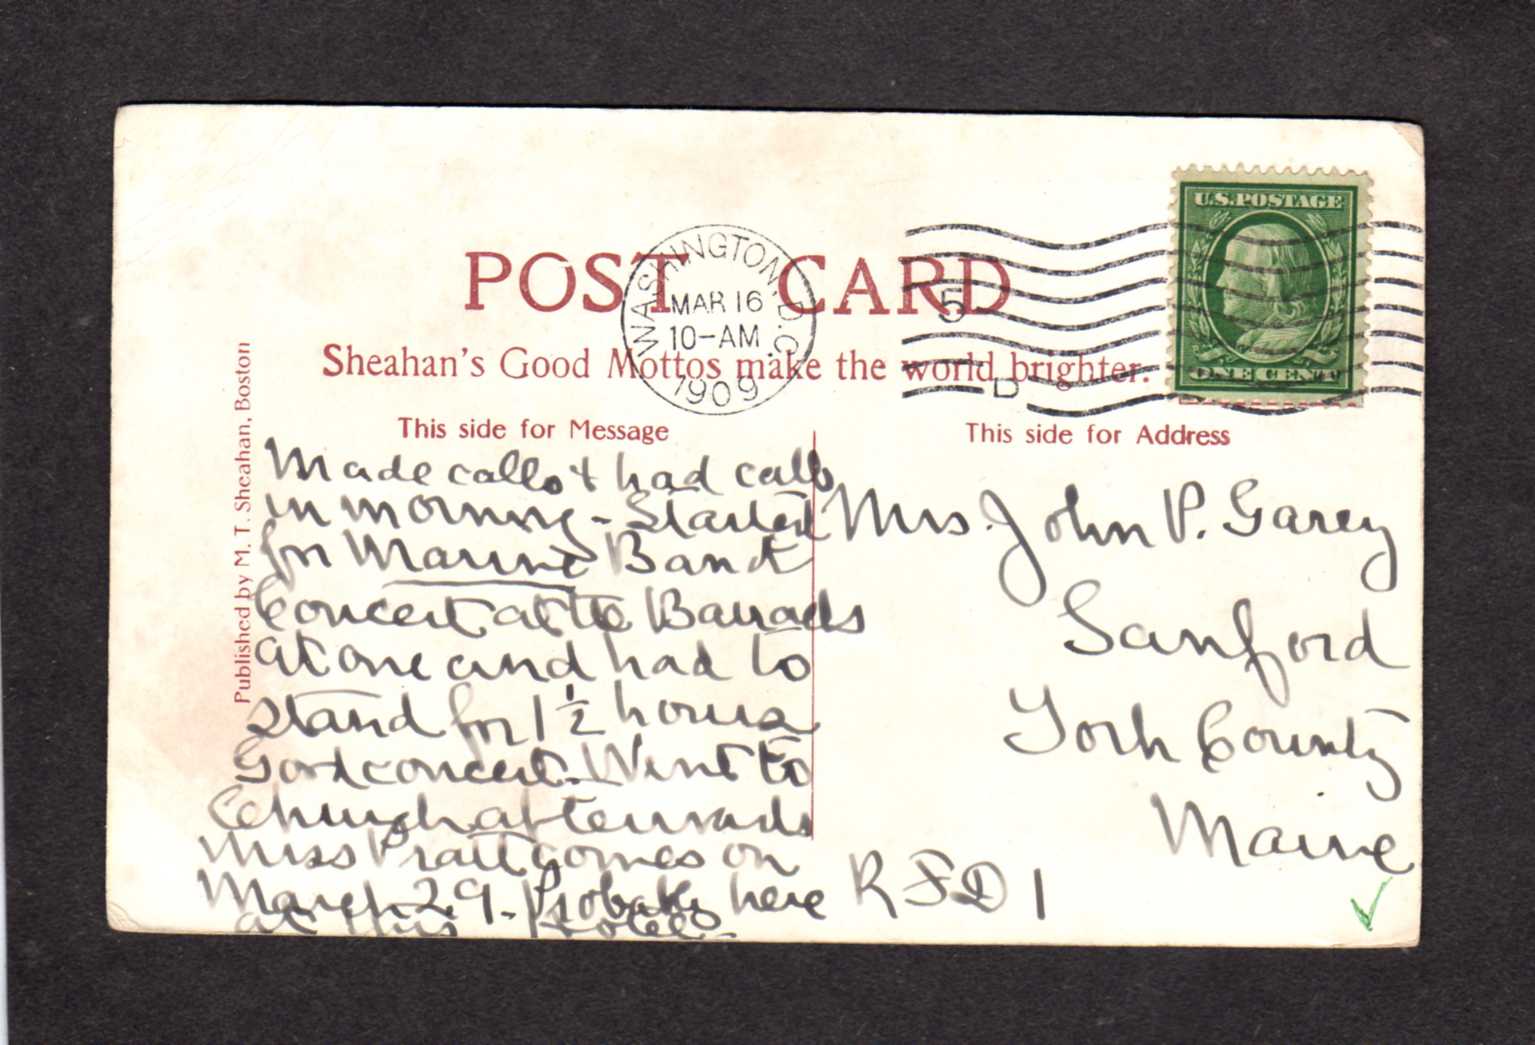 U.S. POSTAGE
ONE CENT
POST CARD
WASHINGTON, D.C.
MAR 16
10-AM
1909
5
D
Sheahan's Good Mottos make the world brighter.
Published by M. T. Sheahan, Boston
This side for Message
Made calls & had calls
in morning - Started
for Marine Band
Concert at the Barracks
at one and had to
stand for 1 1/2 hours
Good concert. Went to
Church afterwards
Miss Pratt comes on
March 29. Probably here
at this Hotel.
This side for Address
Mrs. John P. Garey
Sanford
York County
Maine
R F D 1